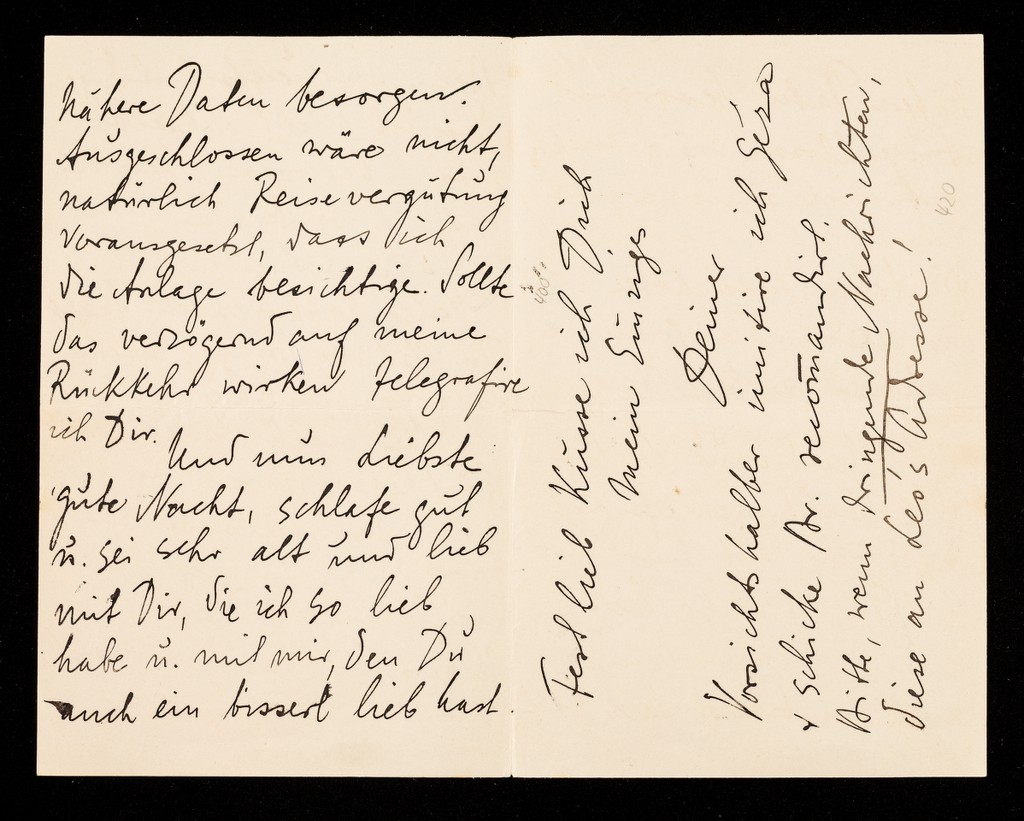 nähere Daten besorgen.
Ausgeschlossen wäre nicht,
natürlich Reisevergütung
vorausgesetzt, dass ich
die Anlage besichtige. Sollte
das verzögernd auf meine
Rückkehr wirken telegrafire
ich Dir.
Und nun Liebste
gute Nacht, schlafe gut
u. sei sehr alt und lieb
mit Dir, die ich so lieb
habe u. mit mir, den Du
auch ein bisserl lieb hast.
Fest lieb küsse ich Dich
mein Einziges
Deiner
Vorsichtshalber imitire ich Géza
+ schicke Br. recom̅andirt.
Bitte, wenn dringende Nachrichten,
diese an Leo's Adresse!
420